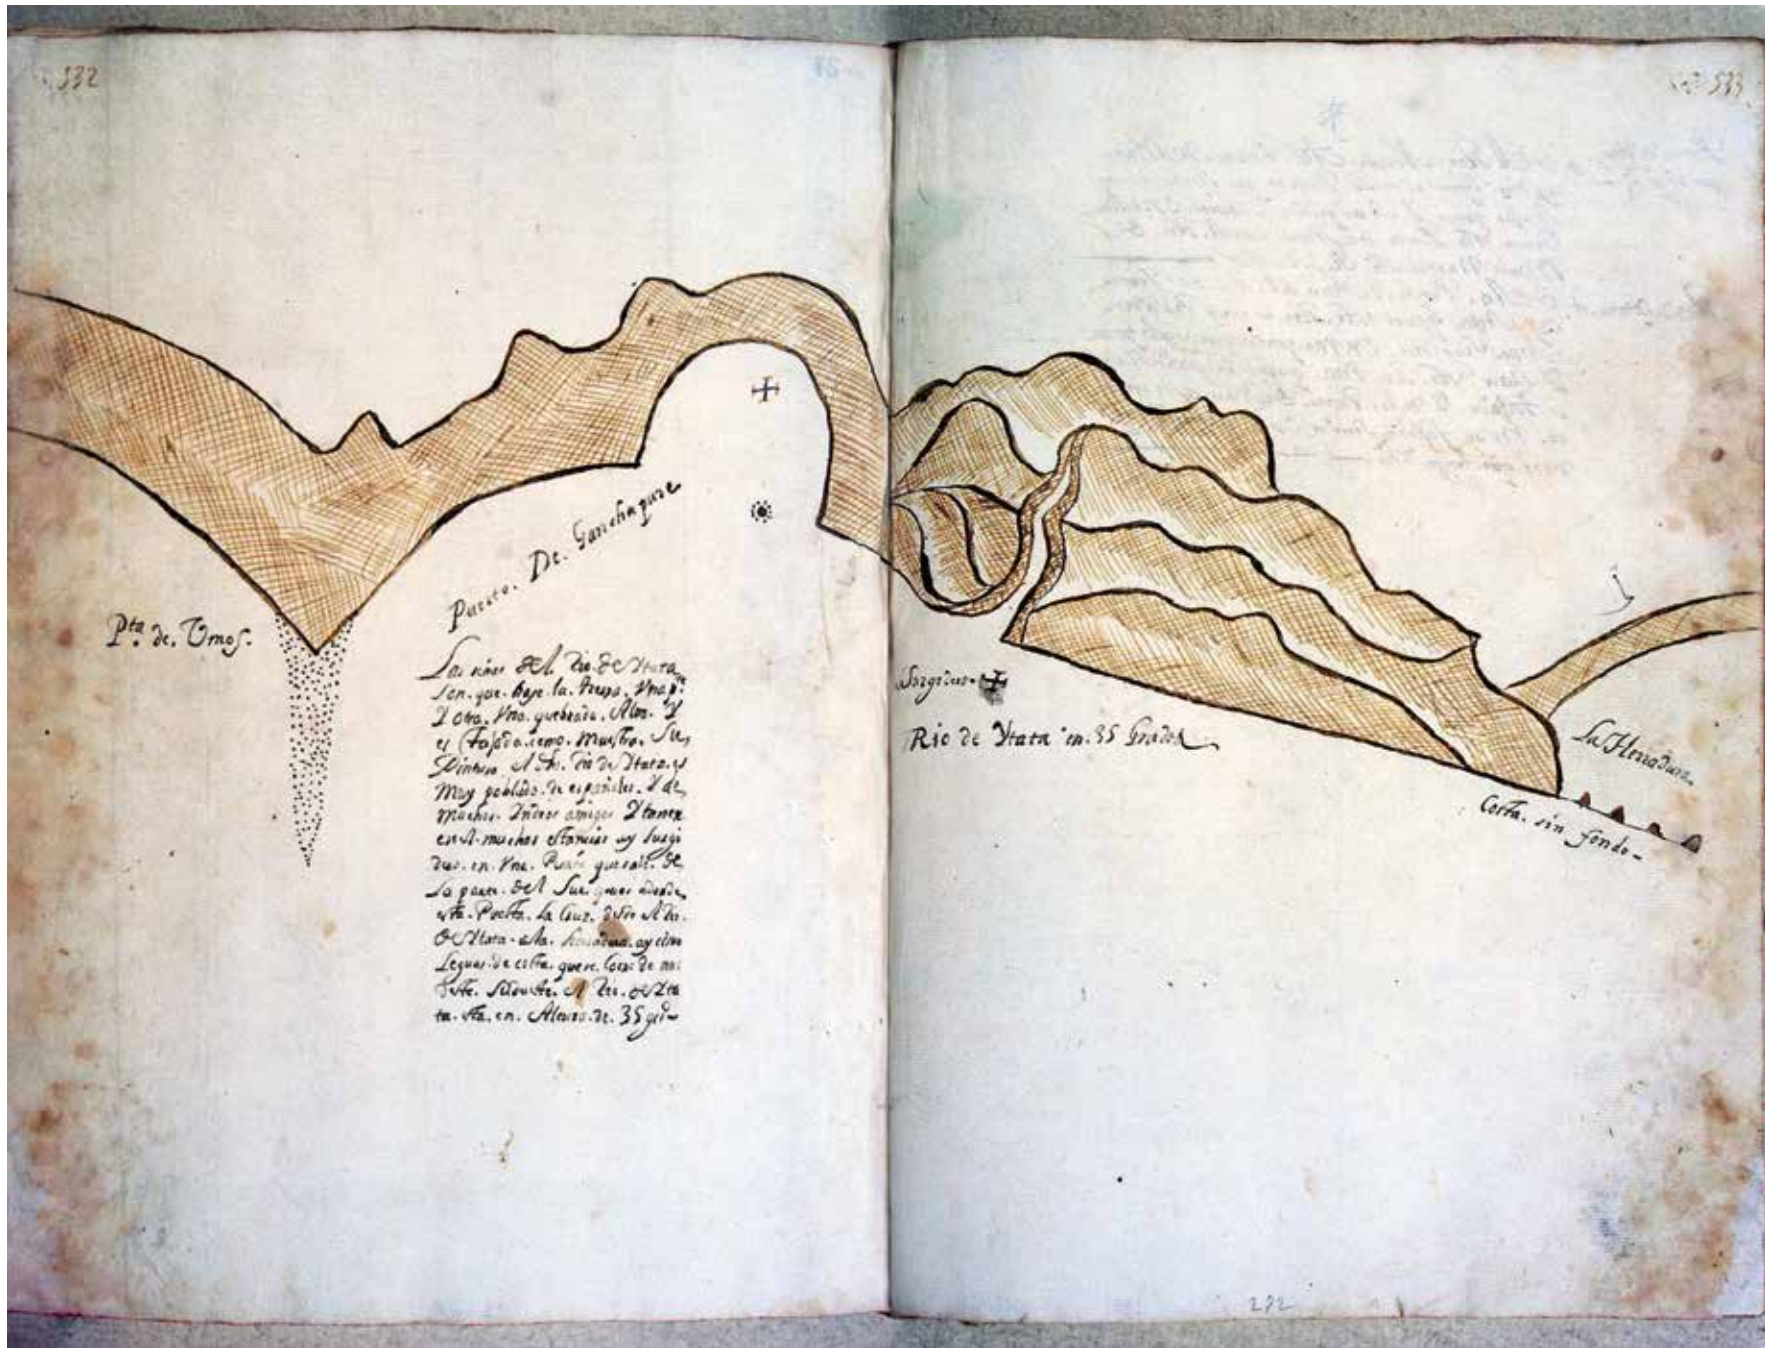 532
Pta de. Umos.
Puerto. De. Ganchaqure
Las señas del. Rio. de Ytata
son. que. baja. la. tierra. Una pte
Y otra. Una. quebrada. Y
es. Tajada. como. muestra. Su
Pintura el dho. Rio de Ytata. es
Muy poblado. de españoles. Y de
muchos. Yndios amigos Y tienen
en el. muchas estancias ay surgi
dero. en. Una. Punta que sale. de
La parte. del Sur. ques adonde
esta. Puesta. la Cruz. desde el Rio
de Ytata. a la. herradura. ay
Leguas. de costa. que se. Corre de
el Rio. de Yta
ta. esta. en. Altura. de. 35 grdos
533
Surgidero
Rio de Ytata en. 35 Grados
La Herradura
Costa. sin fondo
282